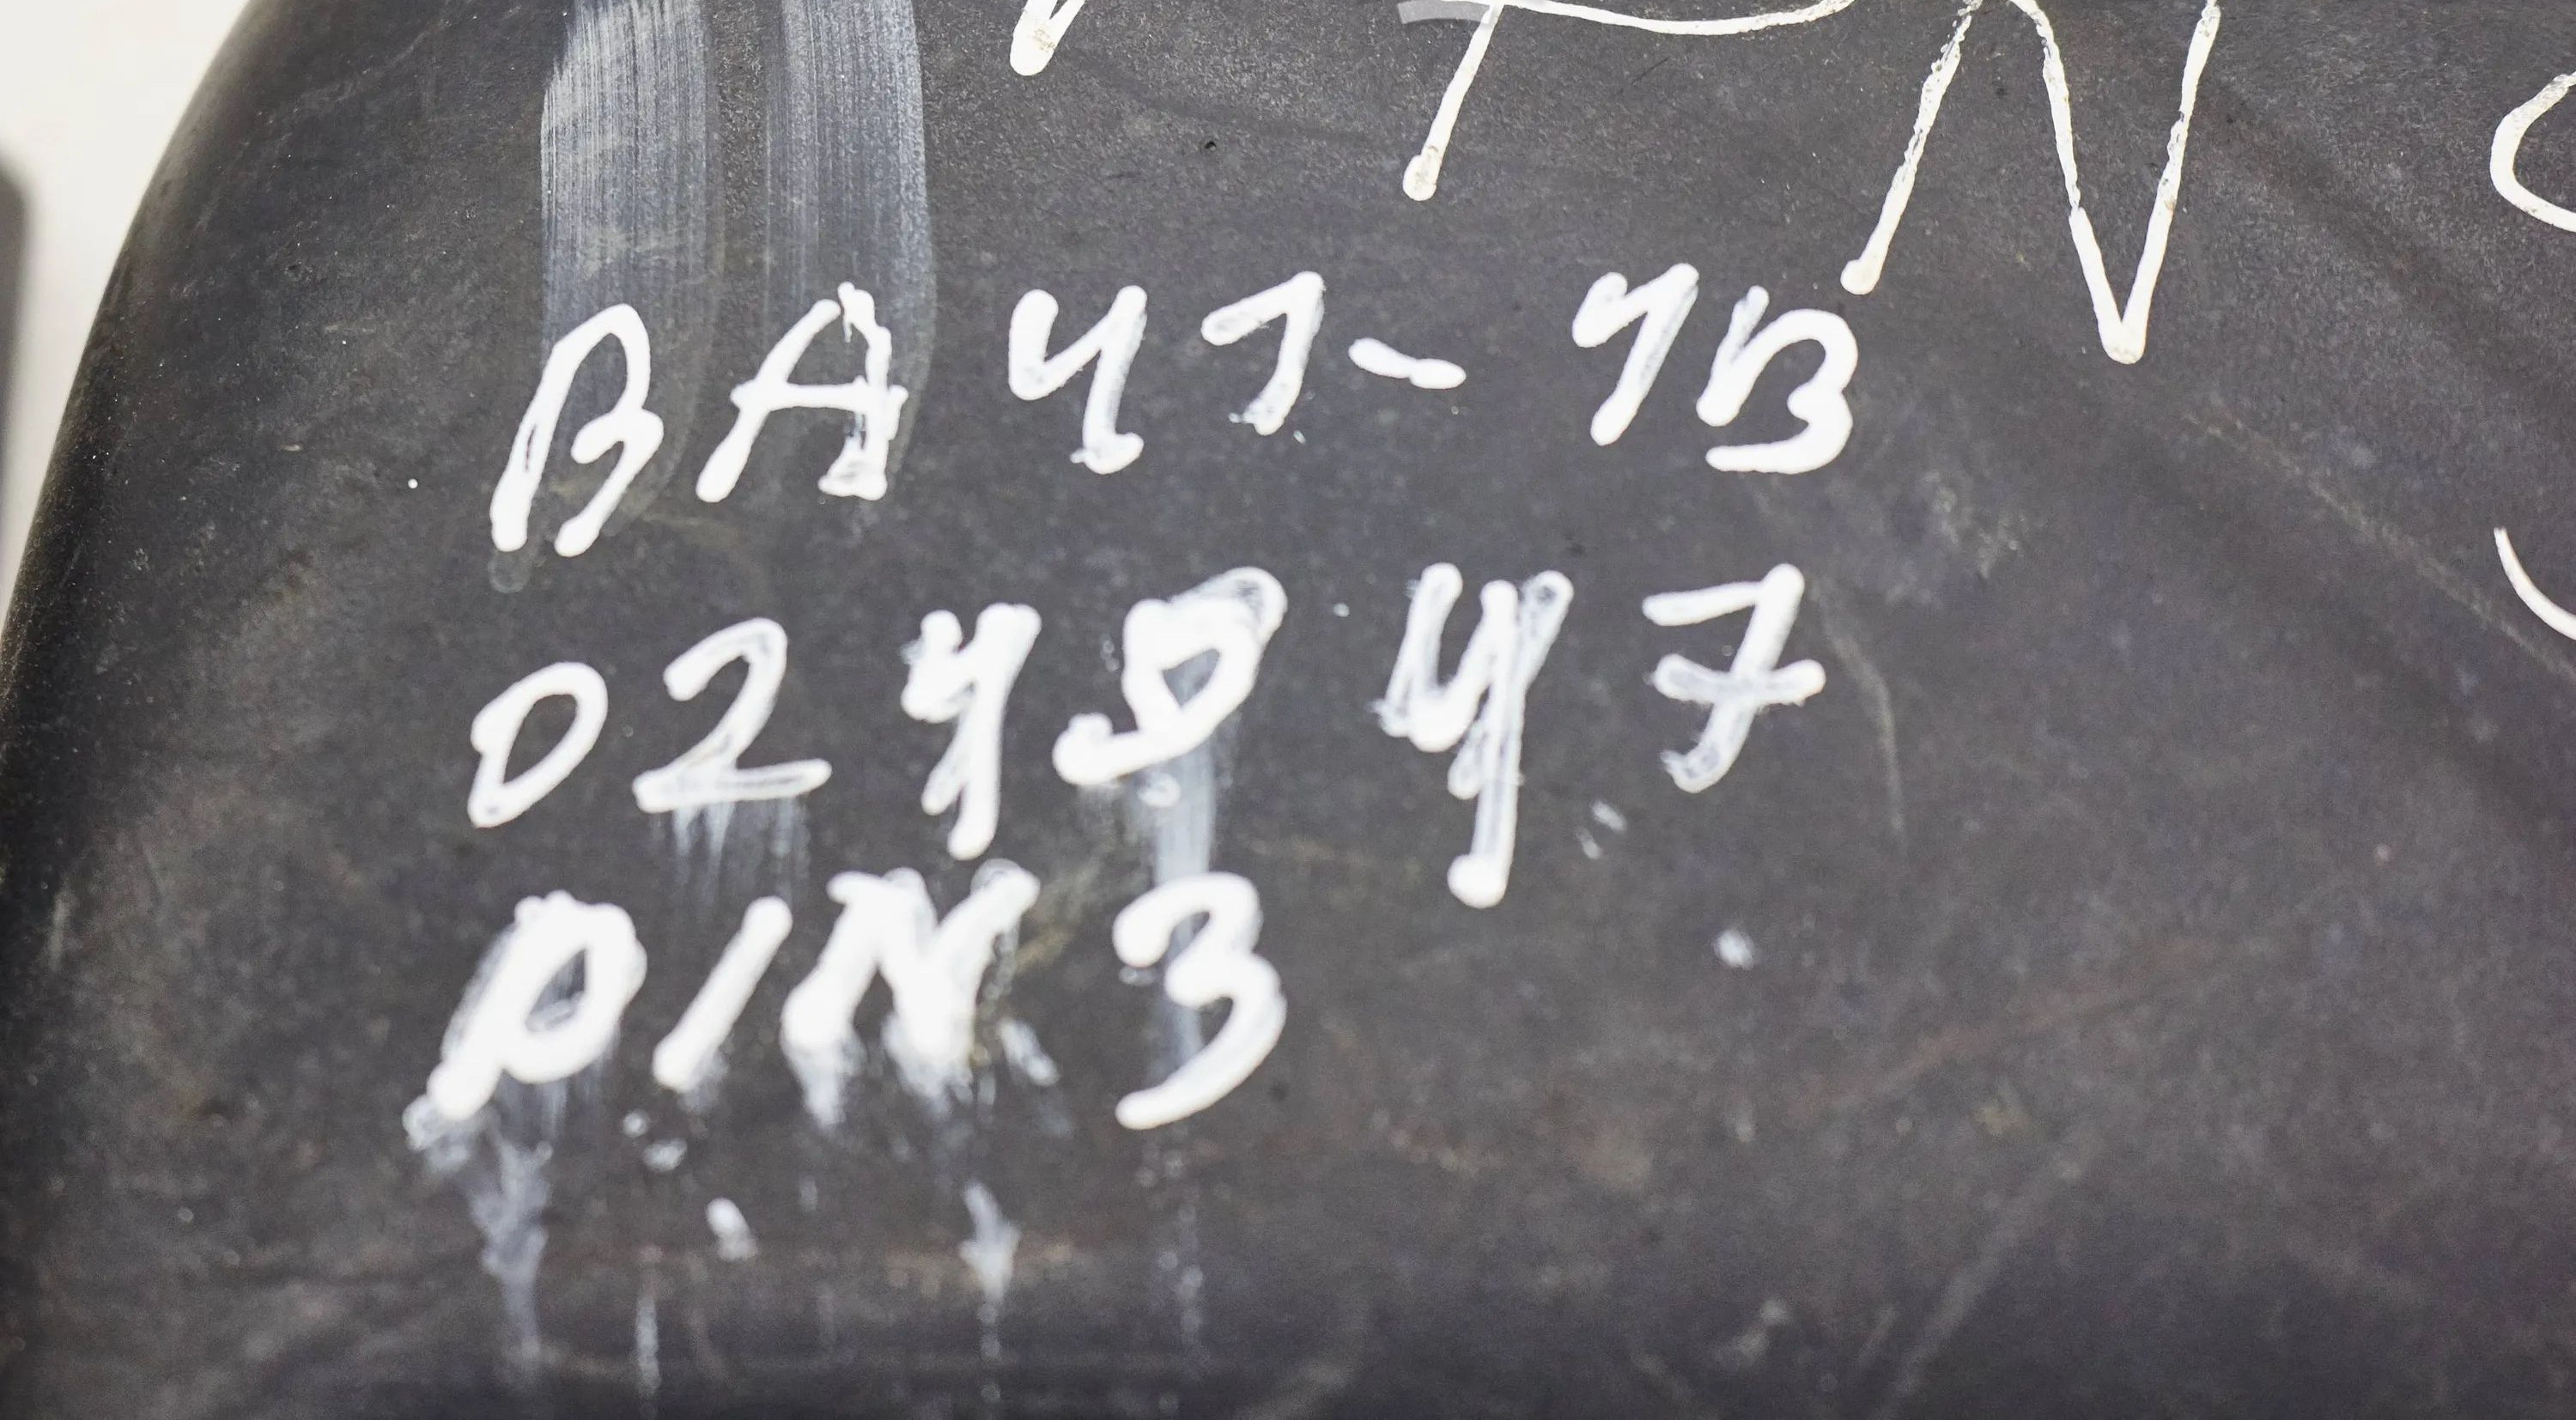 PN
BA 41-1B
024947
PIN 3